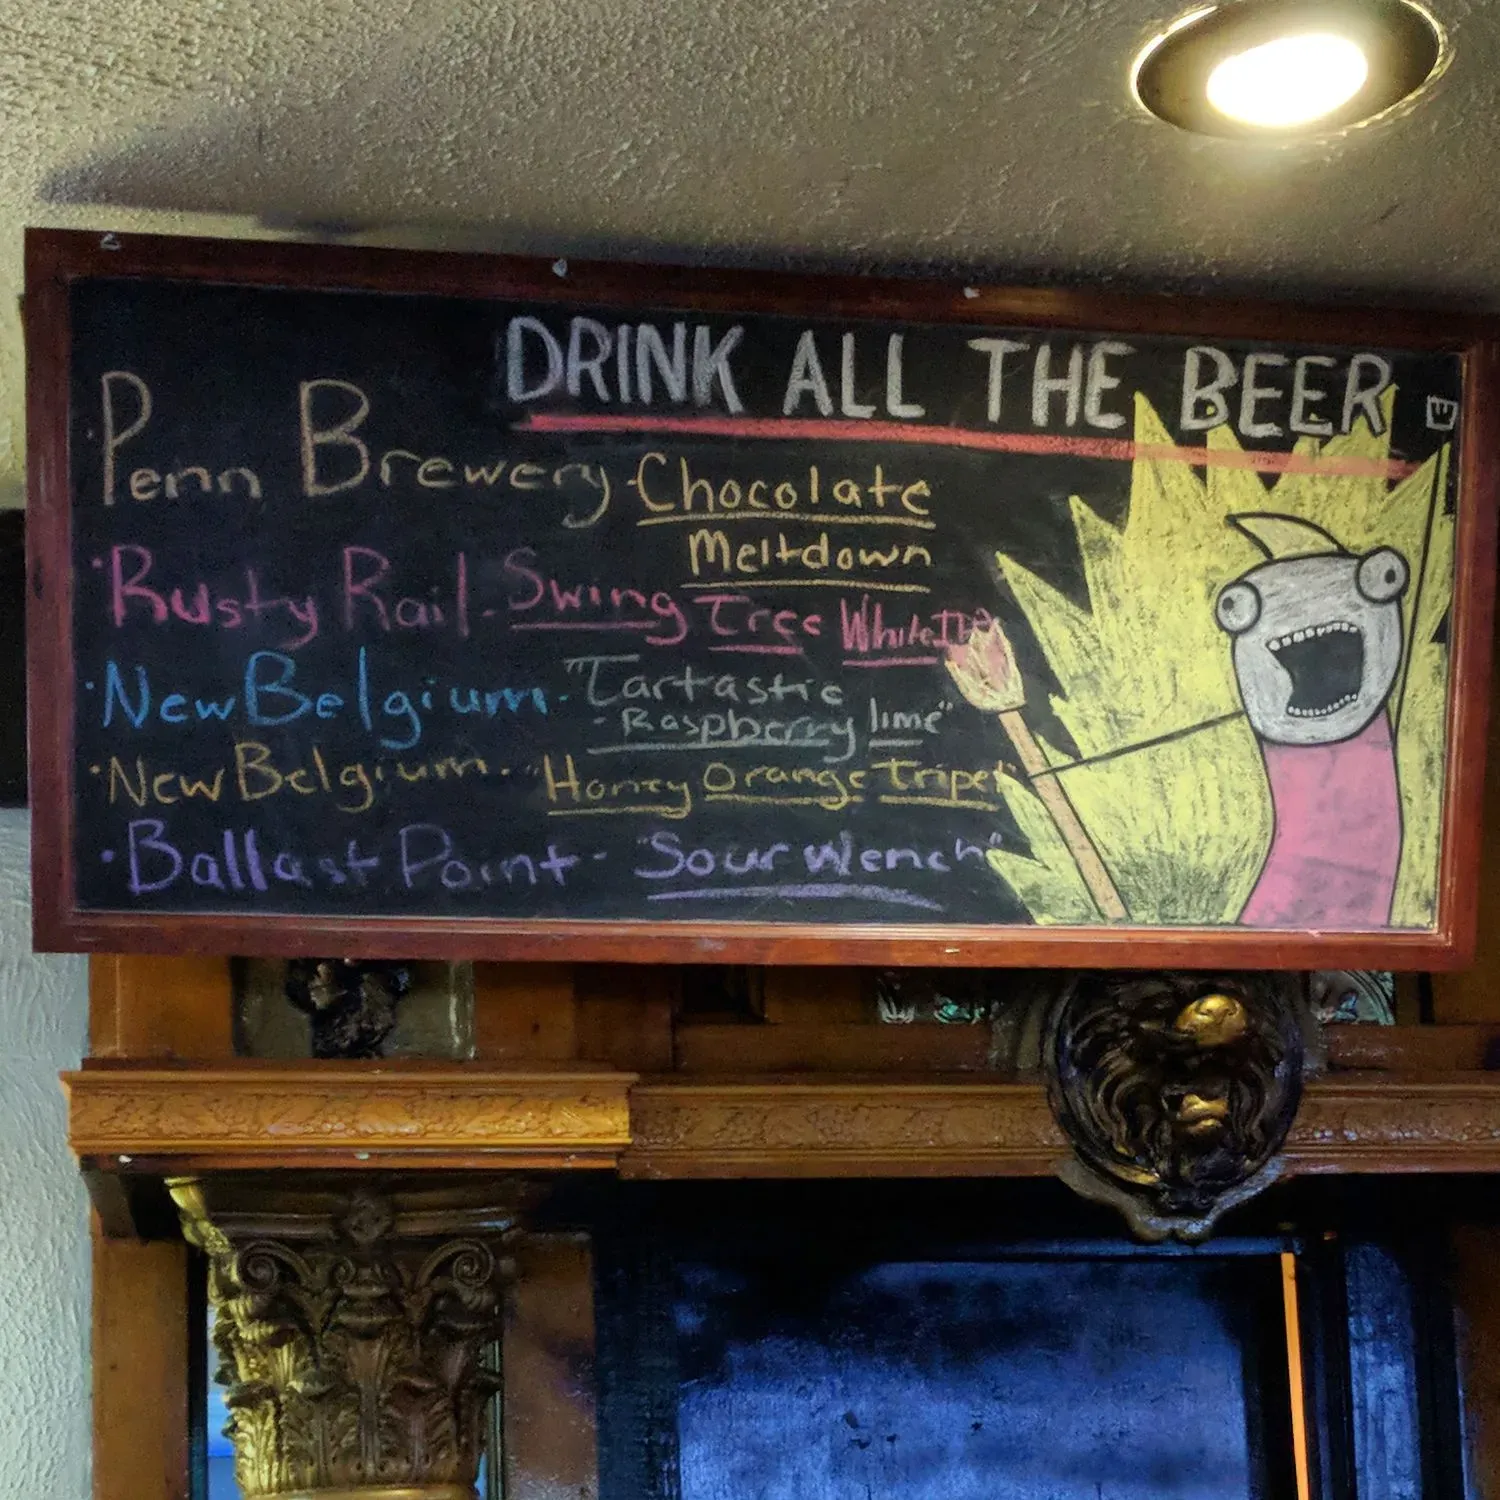 DRINK ALL THE BEER
·Penn Brewery-Chocolate
Meltdown
·Rusty Rail-Swing Tree White IPA
·New Belgium-"Tartastic
-Raspberry lime"
·New Belgium-"Honey Orange Tripel"
·Ballast Point-"Sour Wench"